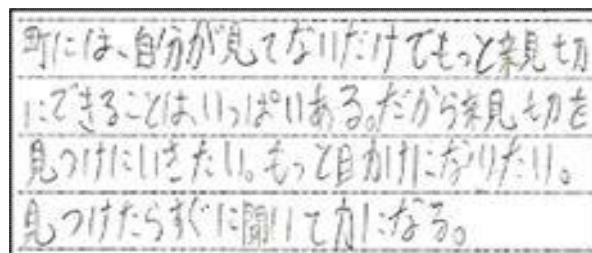 町には、自分が見てないだけでもっと親切
にできることは、いっぱいある。だから親切を
見つけにいきたい。もっと目かけになりたい。
見つけたらすぐに聞いて力になる。